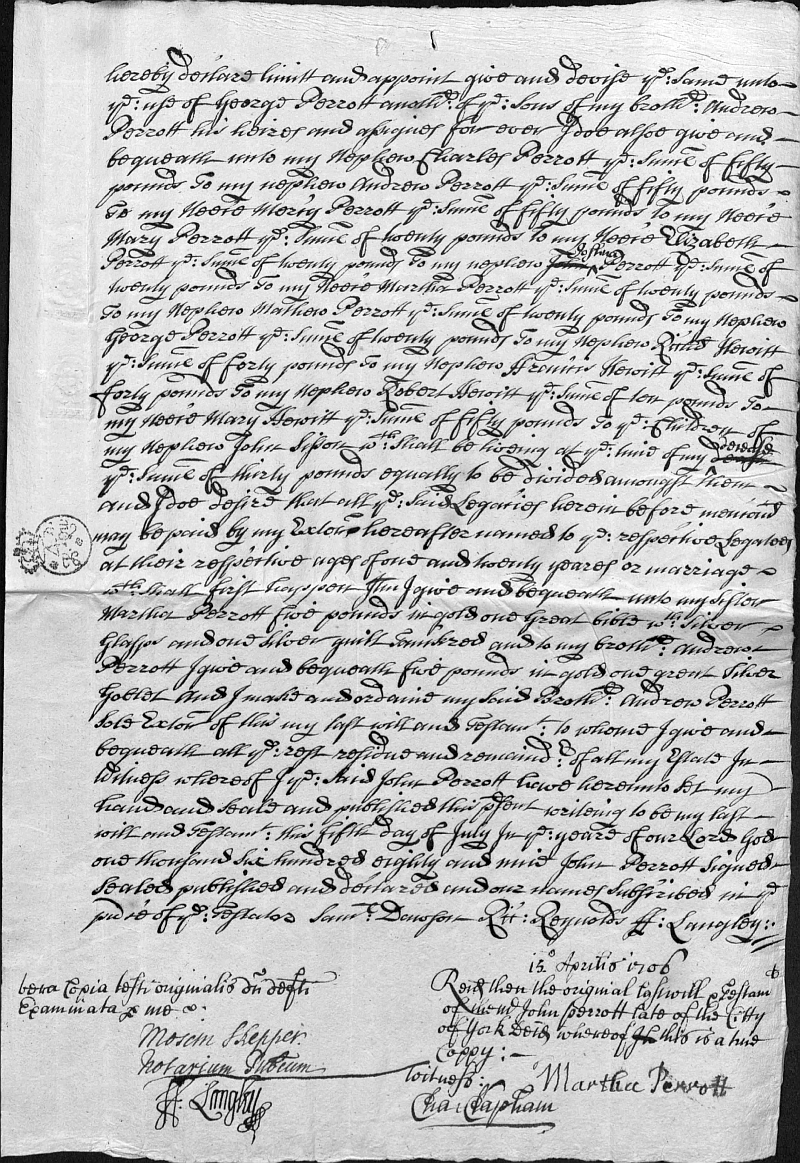 hereby declare limitt and appoint give and devise ye: same unto
ye: use of George Perrott anothr: of ye: Sons of my brothr: Andrew
Perrott his heires and assignes for ever I doe alsoe give and
bequeath unto my Nephew Charles Perrott ye: Sume of fifty
pounds To my nephew Andrew Perrott ye: Sume of fifty pounds
To my Neece Perrott ye: Sume of fifty pounds to my Neece
Mary Perrott ye: Sume of twenty pounds to my Neece Elizabeth
Perrott ye: Sume of twenty pounds to my nephew Perrott ye: Sume of
twenty pounds to my Neece Martha Perrott ye: Sume of twenty pounds
To my Nephew Mathew Perrott ye: Sume of twenty pounds To my Nephew
George Perrott ye: Sume of twenty pounds To my Nephew Hewitt
ye: Sume of forty pounds To my Nephew Francis Hewitt ye: Sume of
forty pounds To my Nephew Robert Hewitt ye: Sume of ten pounds To
my Neece Mary Hewitt ye: Sume of fifty pounds To ye: Children of
my Nephew John Sisson wch: shall be liveing at ye: time of my decease
ye: Sume of thirty pounds equally to be divided amongst them
and I doe desire that all ye: said Legacies herein before
may be paid by my Extor hereafter named to ye: respective Legatees
at their respective ages of one and twenty yeares or marriage
wch: shall first happen Itm I give and bequeath unto my Sister
Martha Perrott five pounds in gold one great bible wth: Silver
Glasps and one Silver guilt Tankred and to my brothr: Andrew
Perrott I give and bequeath five pounds in gold one great Silver
Goblet And I make and ordaine my said Brothr: Andrew Perrott
Sole Extor of this my last will and Testamt: to whome I give and
bequeath all ye: rest residue and remaindr: of all my Estate In
witness whereof I ye: said John Perrott have hereunto Set my
hand and Seale and published this psent writeing to be my last
will and Testamt: this fifth day of July In ye: yeare of our Lord God
one thousand Six hundred eighty and nine John Perrott Signed
Sealed published and declared and our names Subscribed in ye
psence of ye: Testator Samll: Dawson Ric: Reynolds ff: Langley:
15o Aprilis 1706
vera Copia testi originalis
Examinata p me
Notarium Publicum
ff: Langley
Recd then the original last will & Testam
of John Perrott late of the Citty
of York Decd whereof this is a true
Coppy:
Witness: Martha Perrott
Cha: Clapham